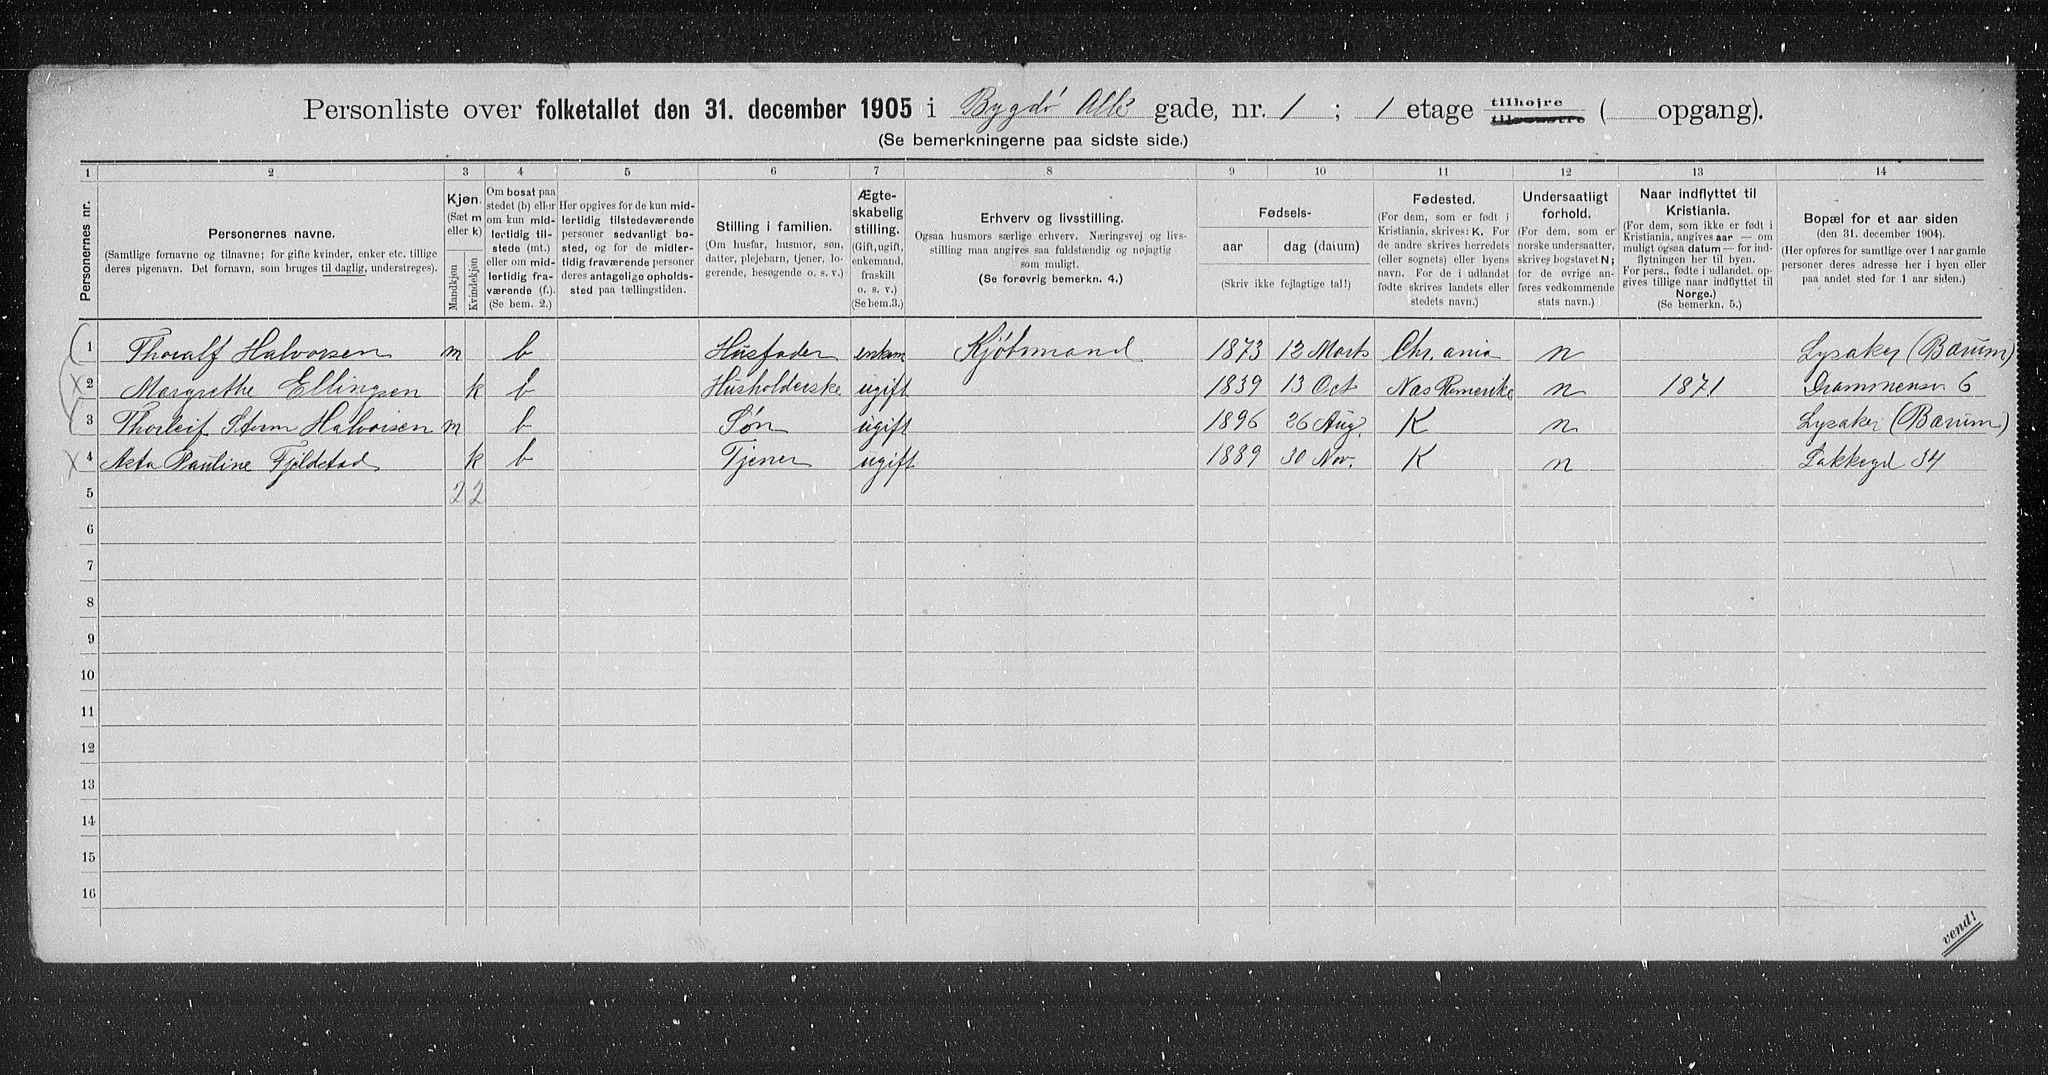 Personliste over folketallet den 31. december 1905 i Bygdø Allé gade, nr. 1 ; 1 etage tilhøjre tilvenstre ( opgang).
(Se bemerkningerne paa sidste side.)
1 2 3 4 5 6 7 8 9 10 11 12 13 14
Personernes nr.
Personernes navne.
(Samtlige fornavne og tilnavne; for gifte kvinder, enker etc. tillige
deres pigenavn. Det fornavn, som bruges til daglig, understreges).
Kjøn.
(Sæt m
eller k)
Mandkjøn
Kvindekjøn
Om bosat paa
stedet (b) eller
om kun mid-
lertidig til-
stede (mt.)
eller om mid-
lertidig fra-
værende (f.).
(Se bem. 2.)
Her opgives for de kun mid-
lertidig tilstedeværende
personer sedvanligt bo-
sted, og for de midler-
tidig fraværende personer
deres antagelige opholds-
sted paa tællingstiden.
Stilling i familien.
(Om husfar, husmor, søn,
datter, plejebarn, tjener, lo-
gerende, besøgende o. s. v.)
Ægte-
skabelig
stilling.
(Gift, ugift,
enkemand,
fraskilt
o. s. v.)
(Se bem.3.)
Erhverv og livsstilling.
Ogsaa husmors særlige erhverv. Næringsvej og livs-
stilling maa angives saa fuldstændig og nøjagtig
som muligt.
(Se forøvrig bemerkn. 4.)
Fødsels-
aar dag (daium)
(Skriv ikke fejlagtige tal!!)
Fødested.
(For dem, som er født i
Kristiania, skrives: K. For
de andre skrives herredets
(eller sognets) eller byens
navn. For de i udlandet
fødte skrives landets eller
stedets navn.)
Undersaatligt
forhold.
(For dem, som er
norske undersaatter,
skrives bogstavet N;
for de øvrige an-
føres vedkommende
stats navn.)
Naar indflyttet til
Kristiania.
(For dem, som ikke er født i
Kristiania, angives aar — om
muligt ogsaa datum — for ind-
flytningen her til byen.
For pers., fødte i udlandet. op-
gives tillige naar indflyttet til
Norge.)
(Se bemerkn. 5.)
Bopæl for et aar siden
(den 31. december 1904).
(Her opføres for samtlige over 1 aar gamle
personer deres adresse her i byen eller
paa andet sted for 1 aar siden.)
1 Thoralf Halvorsen m b Husfader enkem Kjøbmand 1873 12 Marts Chr.ania n Lysaker (Bærum)
2 Margrethe Ellingsen k b Husholderske ugift 1839 13 Oct Nas Romerike n 1871 Drammensv 6
3 Thorleif Storm Halvorsen m b Søn ugift 1896 26 Aug. K n Lysaker (Bærum)
4 Asta Pauline Fjeldstad k b Tjener ugift 1889 30 Nov. K n Lakkegd 34
5 2 2
6
7
8
9
10
11
12
13
14
15
16
vend!